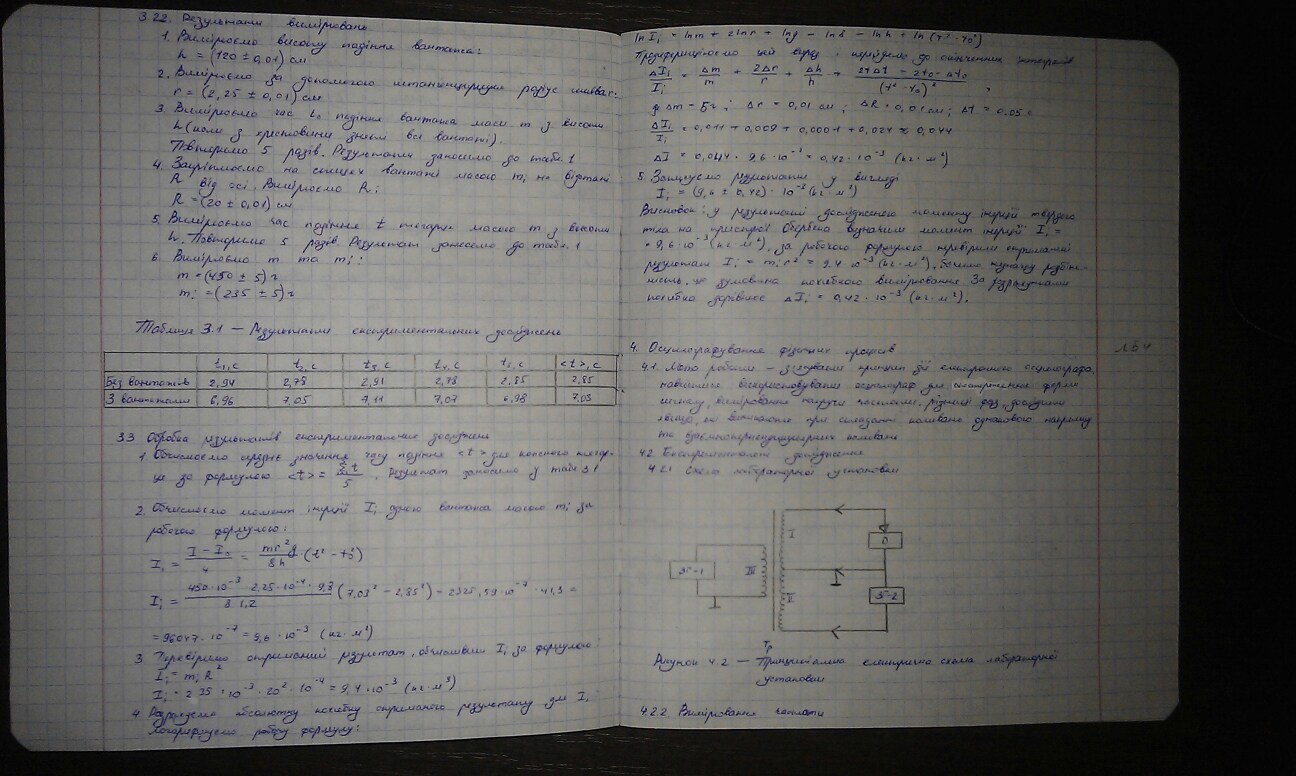 3.22. Результати вимірювань
1. Вимірюємо висоту падіння вантажа:
h = (120 ± 0,01) см
2. Вимірюємо за допомогою штангенциркуля радіус шківа:
r = (2,25 ± 0,01) см
3. Вимірюємо час t₀ падіння вантажа маси m з висоти
h (коли з хрестовини зняті всі вантажі).
Повторимо 5 разів. Результати заносимо до табл. 1
4. Закріплюємо на спицях вантажі масою mᵢ на відстані
R від осі. Вимірюємо R:
R = (20 ± 0,01) см
5. Вимірюємо час падіння t тягарця масою m з висоти
h. Повторимо 5 разів. Результати заносимо до табл. 1
6. Вимірюємо m та mᵢ:
m = (450 ± 5) г
mᵢ = (235 ± 5) г
Таблиця 3.1 — Результати експериментальних досліджень
t₁, с t₂, с t₃, с t₄, с t₅, с <t>, с
Без вантажів 2,94 2,78 2,91 2,78 2,85 2,85
З вантажами 6,96 7,05 7,11 7,07 6,98 7,03
3.3 Обробка результатів експериментальних досліджень
1. Обчислюємо середнє значення часу падіння <t> для кожного тягар-
ця за формулою <t> = Σt/5. Результат заносимо у табл 3.1
2. Обчислюємо момент інерції Iᵢ одного вантажа масою mᵢ за
робочою формулою:
Iᵢ = (I − I₀)/4 = mr²g/8h · (t² − t₀²)
Iᵢ = 450·10⁻³ · 2,25·10⁻⁴ · 9,8 / 8·1,2 (7,03² − 2,85²) = 2325,59·10⁻⁷ · 41,3 =
= 96047·10⁻⁷ = 9,6·10⁻³ (кг·м²)
3. Перевіримо отриманий результат, обчисливши Iᵢ за формулою:
Iᵢ = mᵢR²
Iᵢ = 235·10⁻³ · 20² · 10⁻⁴ = 9,4·10⁻³ (кг·м²)
4. Розрахуємо абсолютну похибку отриманого результату для Iᵢ
Логарифмуємо робочу формулу:
ln Iᵢ = ln m + 2 ln r + ln g − ln 8 − ln h + ln (t² − t₀²)
Продиференціюємо цей вираз і перейдемо до скінченних
ΔIᵢ/Iᵢ = Δm/m + 2Δr/r + Δh/h + (2tΔt − 2t₀ · Δt₀)/(t² − t₀²)
де Δm = 5 г; Δr = 0,01 см; ΔR = 0,01 см; Δt = 0,05 с
ΔIᵢ/Iᵢ = 0,011 + 0,009 + 0,0001 + 0,024 ≈ 0,044
ΔI = 0,044 · 9,6·10⁻³ = 0,42·10⁻³ (кг·м²)
5. Записуємо результати у вигляді
Iᵢ = (9,6 ± 0,42) · 10⁻³ (кг·м²)
Висновок: у результаті дослідженого моменту інерції твердого
тіла на пристрої Обербека визначили момент інерції Iᵢ =
= 9,6·10⁻³ (кг·м²), за робочою формулою перевірили отриманий
результат Iᵢ = mᵢr² = 9,4·10⁻³ (кг·м²). Бачимо розбіж-
ність, це зумовлена похибкою вимірювання. За розрахунками
похибка дорівнює ΔIᵢ = 0,42·10⁻³ (кг·м²).
4. Осцилографування фізичних процесів ЛБ 4
4.1. Мета роботи — з'ясувати принцип дії електронного осцилографа,
навчитися використовувати осцилограф для спостереження форми
сигналу, вимірювання напруги частоти, різниці фаз, дослідити
явища, які виникають при складанні коливань однакового напрямку
та взаємоперпендикулярних коливань
4.2. Експериментальні дослідження
4.2.1. Схема лабораторної установки
ЗГ-1 III I II О ЗГ-2
Тр
Рисунок 4.2 — Принципіальна електрична схема лабораторної
установки
4.2.2 Вимірювання частоти